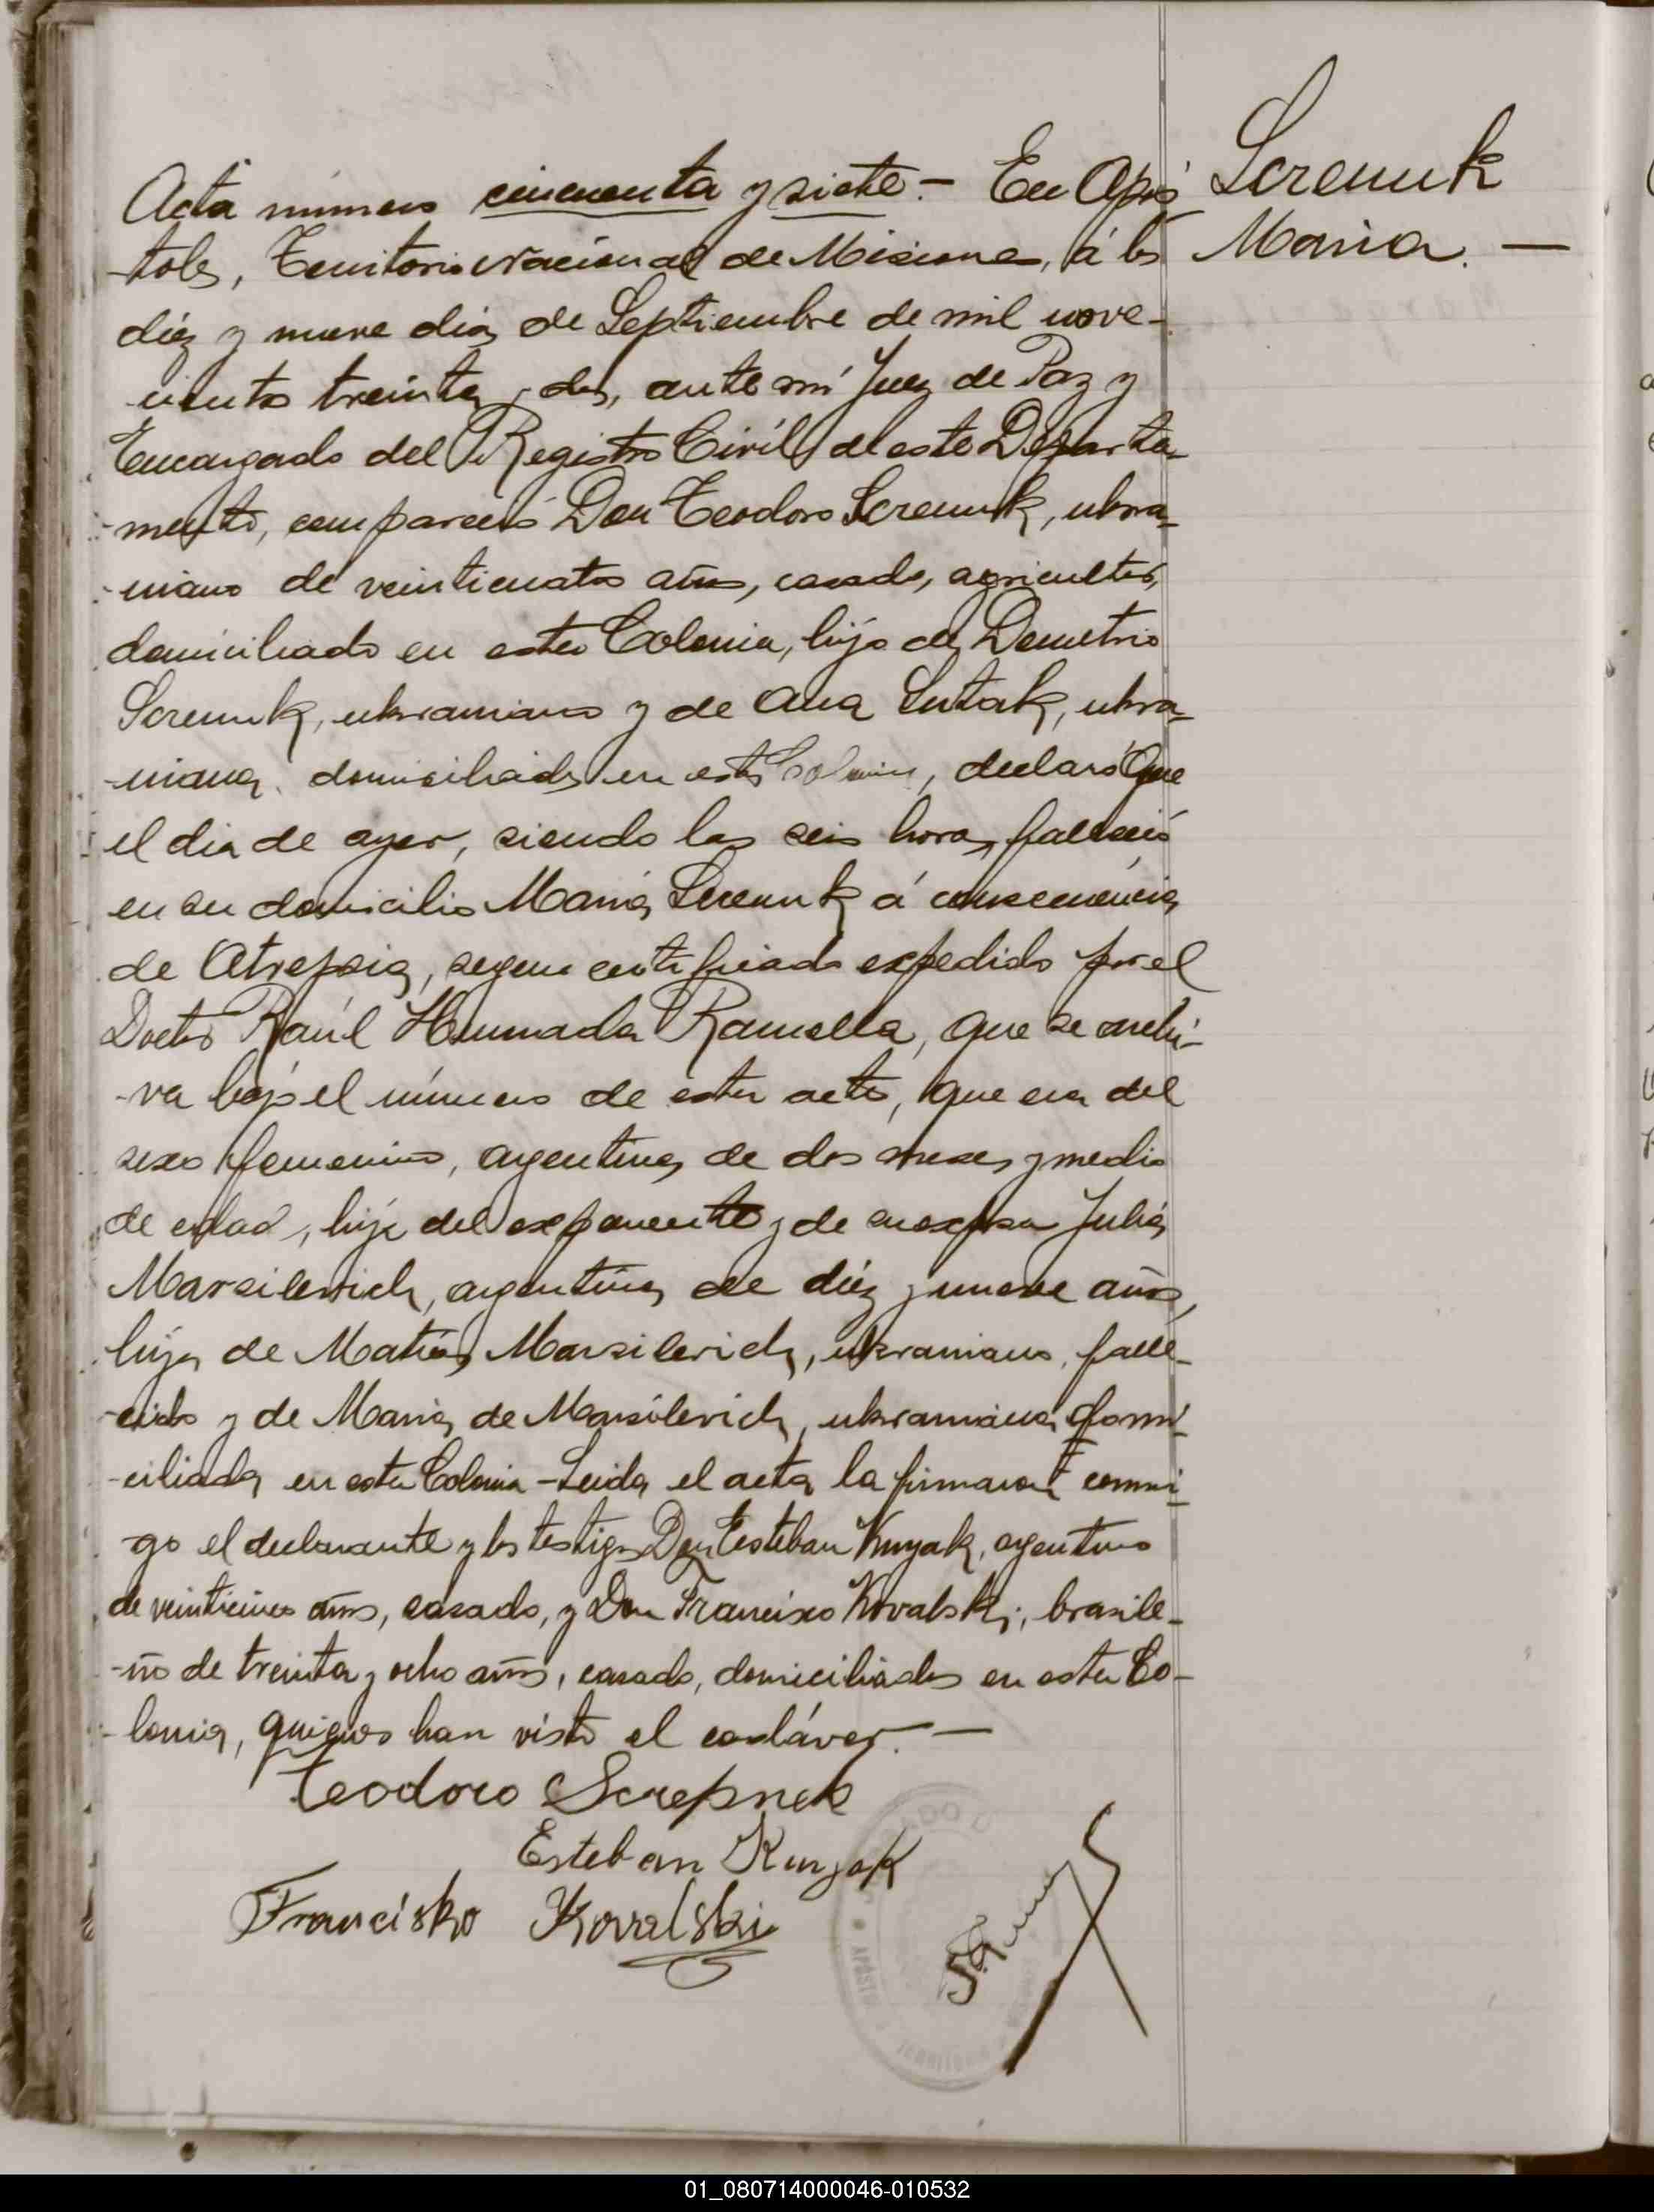 Acta número cincuenta y siete. — En Após
Scremuk
-toles, Territorio Nacional de Misiones, á los
Maria. —
diéz y nueve dias de Septiembre de mil nove-
-cientos treinta y dos, ante mí Juez de Paz y
Encargado del Registro Civil de este Departa-
-mento, compareció Don Teodoro Scremuk, ukra-
-niano de veinticuatro años, casado, agricultor,
domiciliado en esta Colonia, hijo de Demetrio
Scremuk, ukraniano y de Ana Lutak, ukra-
-niana, domiciliados en esta Colonia, declaró Que
el dia de ayer, siendo las seis horas, falleció
en su domicilio Maria Scremuk á consecuencia
de Atrepsia, segun certificado expedido por el
Doctor Raúl Ramella, que se archi-
-va bajo el número de esta acta, que era del
sexo femenino, argentina, de dos meses y medio
de edad, hija del exponente y de su esposa Julia
Marsilevich, argentina, de diéz y nueve años,
hija de Matias Marsilevich, ukraniano, falle-
-cido y de Maria de Marsilevich, ukraniana, domi-
-ciliada en esta Colonia - Leida el acta la firmaron conmi-
go el declarante y los testigos Don Esteban Kunyak, argentino
de veinticinco años, casado, y Don Francisco Kovalski, brasile-
-ño de treinta y ocho años, casado, domiciliados en esta Co-
-lonia, quienes han visto el cadáver. —
Teodoro Screpnek
Esteban Kunjak
Francisko Kovalski
01_080714000046-010532